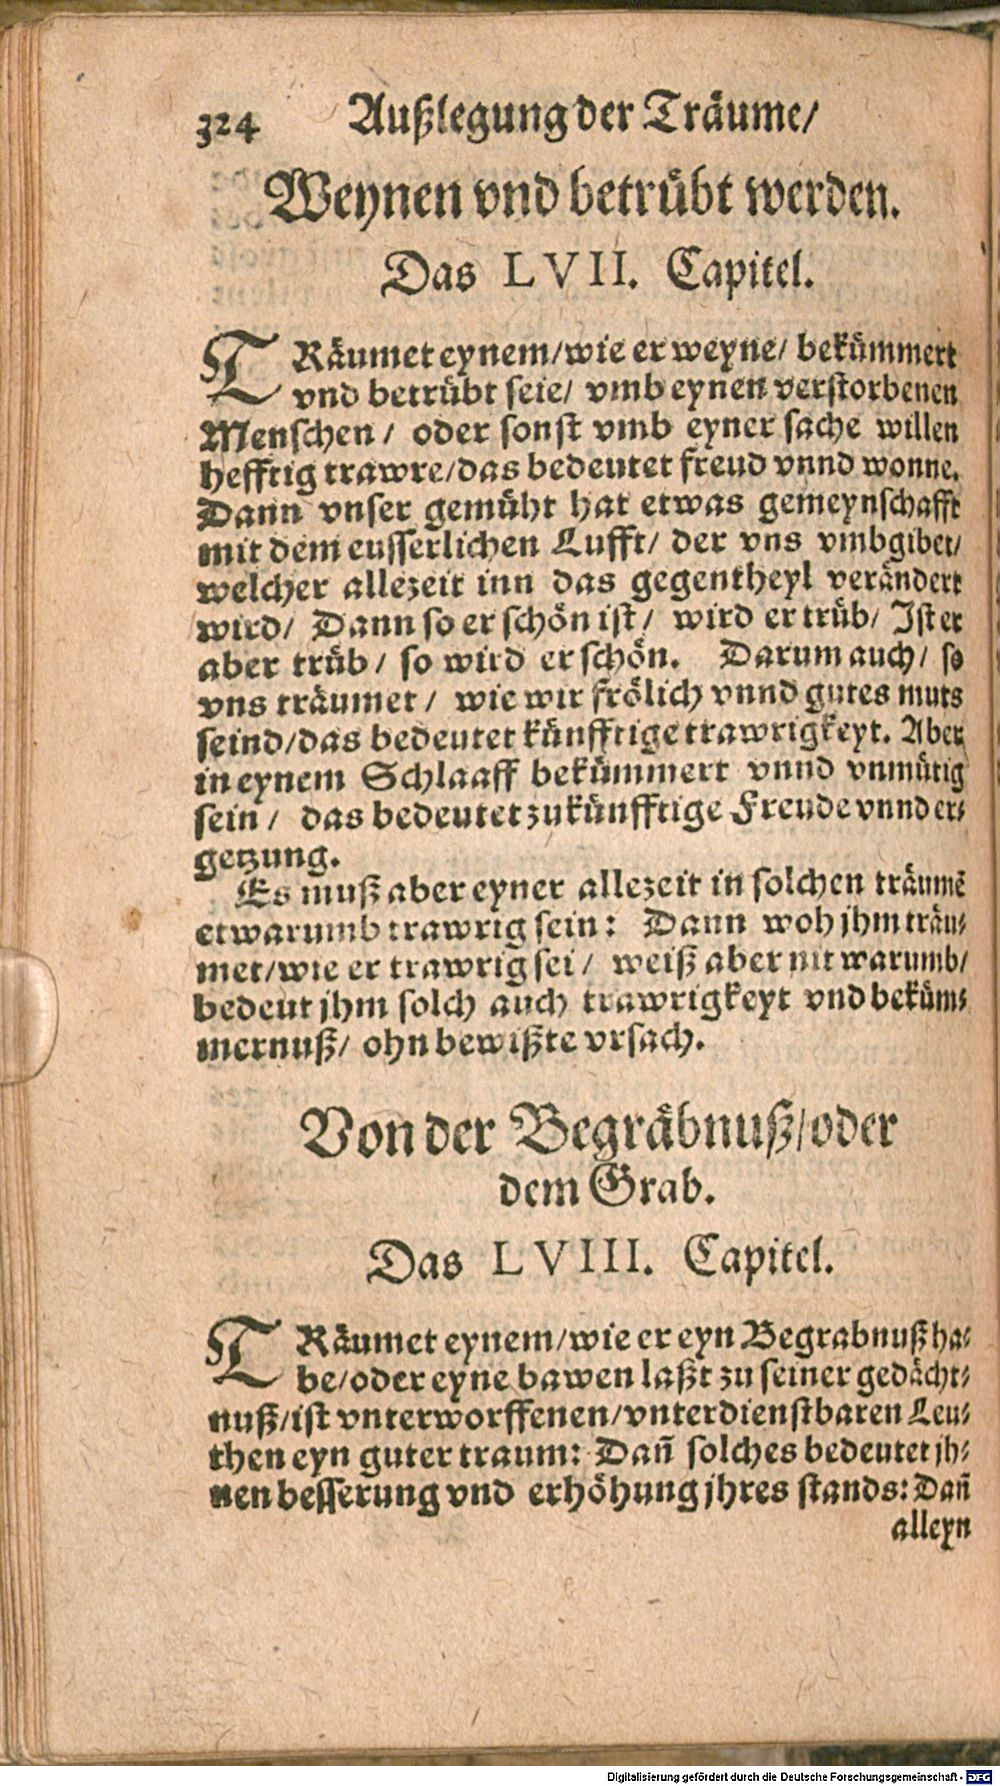 324 Außlegung der Träume/
Weynen vnd betrübt werden.
Das LVII. Capitel.
TRäumet eynem/wie er weyne/ bekümmert
vnd betrübt seie/ vmb eynen verstorbenen
Menschen/ oder sonst vmb eyner sache willen
hefftig trawre/das bedeutet freud vnnd wonne.
Dann vnser gemüht hat etwas gemeynschafft
mit dem eusserlichen Lufft/ der vns vmbgibet/
welcher allezeit inn das gegentheyl verändert
wird/ Dann so er schön ist/ wird er trüb/ Ist er
aber trüb/ so wird er schön. Darum auch/ so
vns träumet/ wie wir frölich vnnd gutes muts
seind/das bedeutet künfftige trawrigkeyt. Aber
in eynem Schlaaff bekümmert vnnd vnmütig
sein/ das bedeutet zukünfftige Freude vnnd er-
getzung.
Es muß aber eyner allezeit in solchen träumē
etwarumb trawrig sein: Dann woh jhm träu-
met/wie er trawrig sei/ weiß aber nit warumb/
bedeut jhm solch auch trawrigkeyt vnd beküm-
mernuß/ ohn bewißte vrsach.
Von der Begräbnuß/oder
dem Grab.
Das LVIII. Capitel.
TRäumet eynem/wie er eyn Begrabnuß ha-
be/oder eyne bawen laßt zu seiner gedächt-
nuß/ist vnterworffenen/vnterdienstbaren Leu-
then eyn guter traum: Dañ solches bedeutet jh-
nen besserung vnd erhöhung jhres stands: Dañ
alleyn
Digitalisierung gefördert durch die Deutsche Forschungsgemeinschaft - DFG